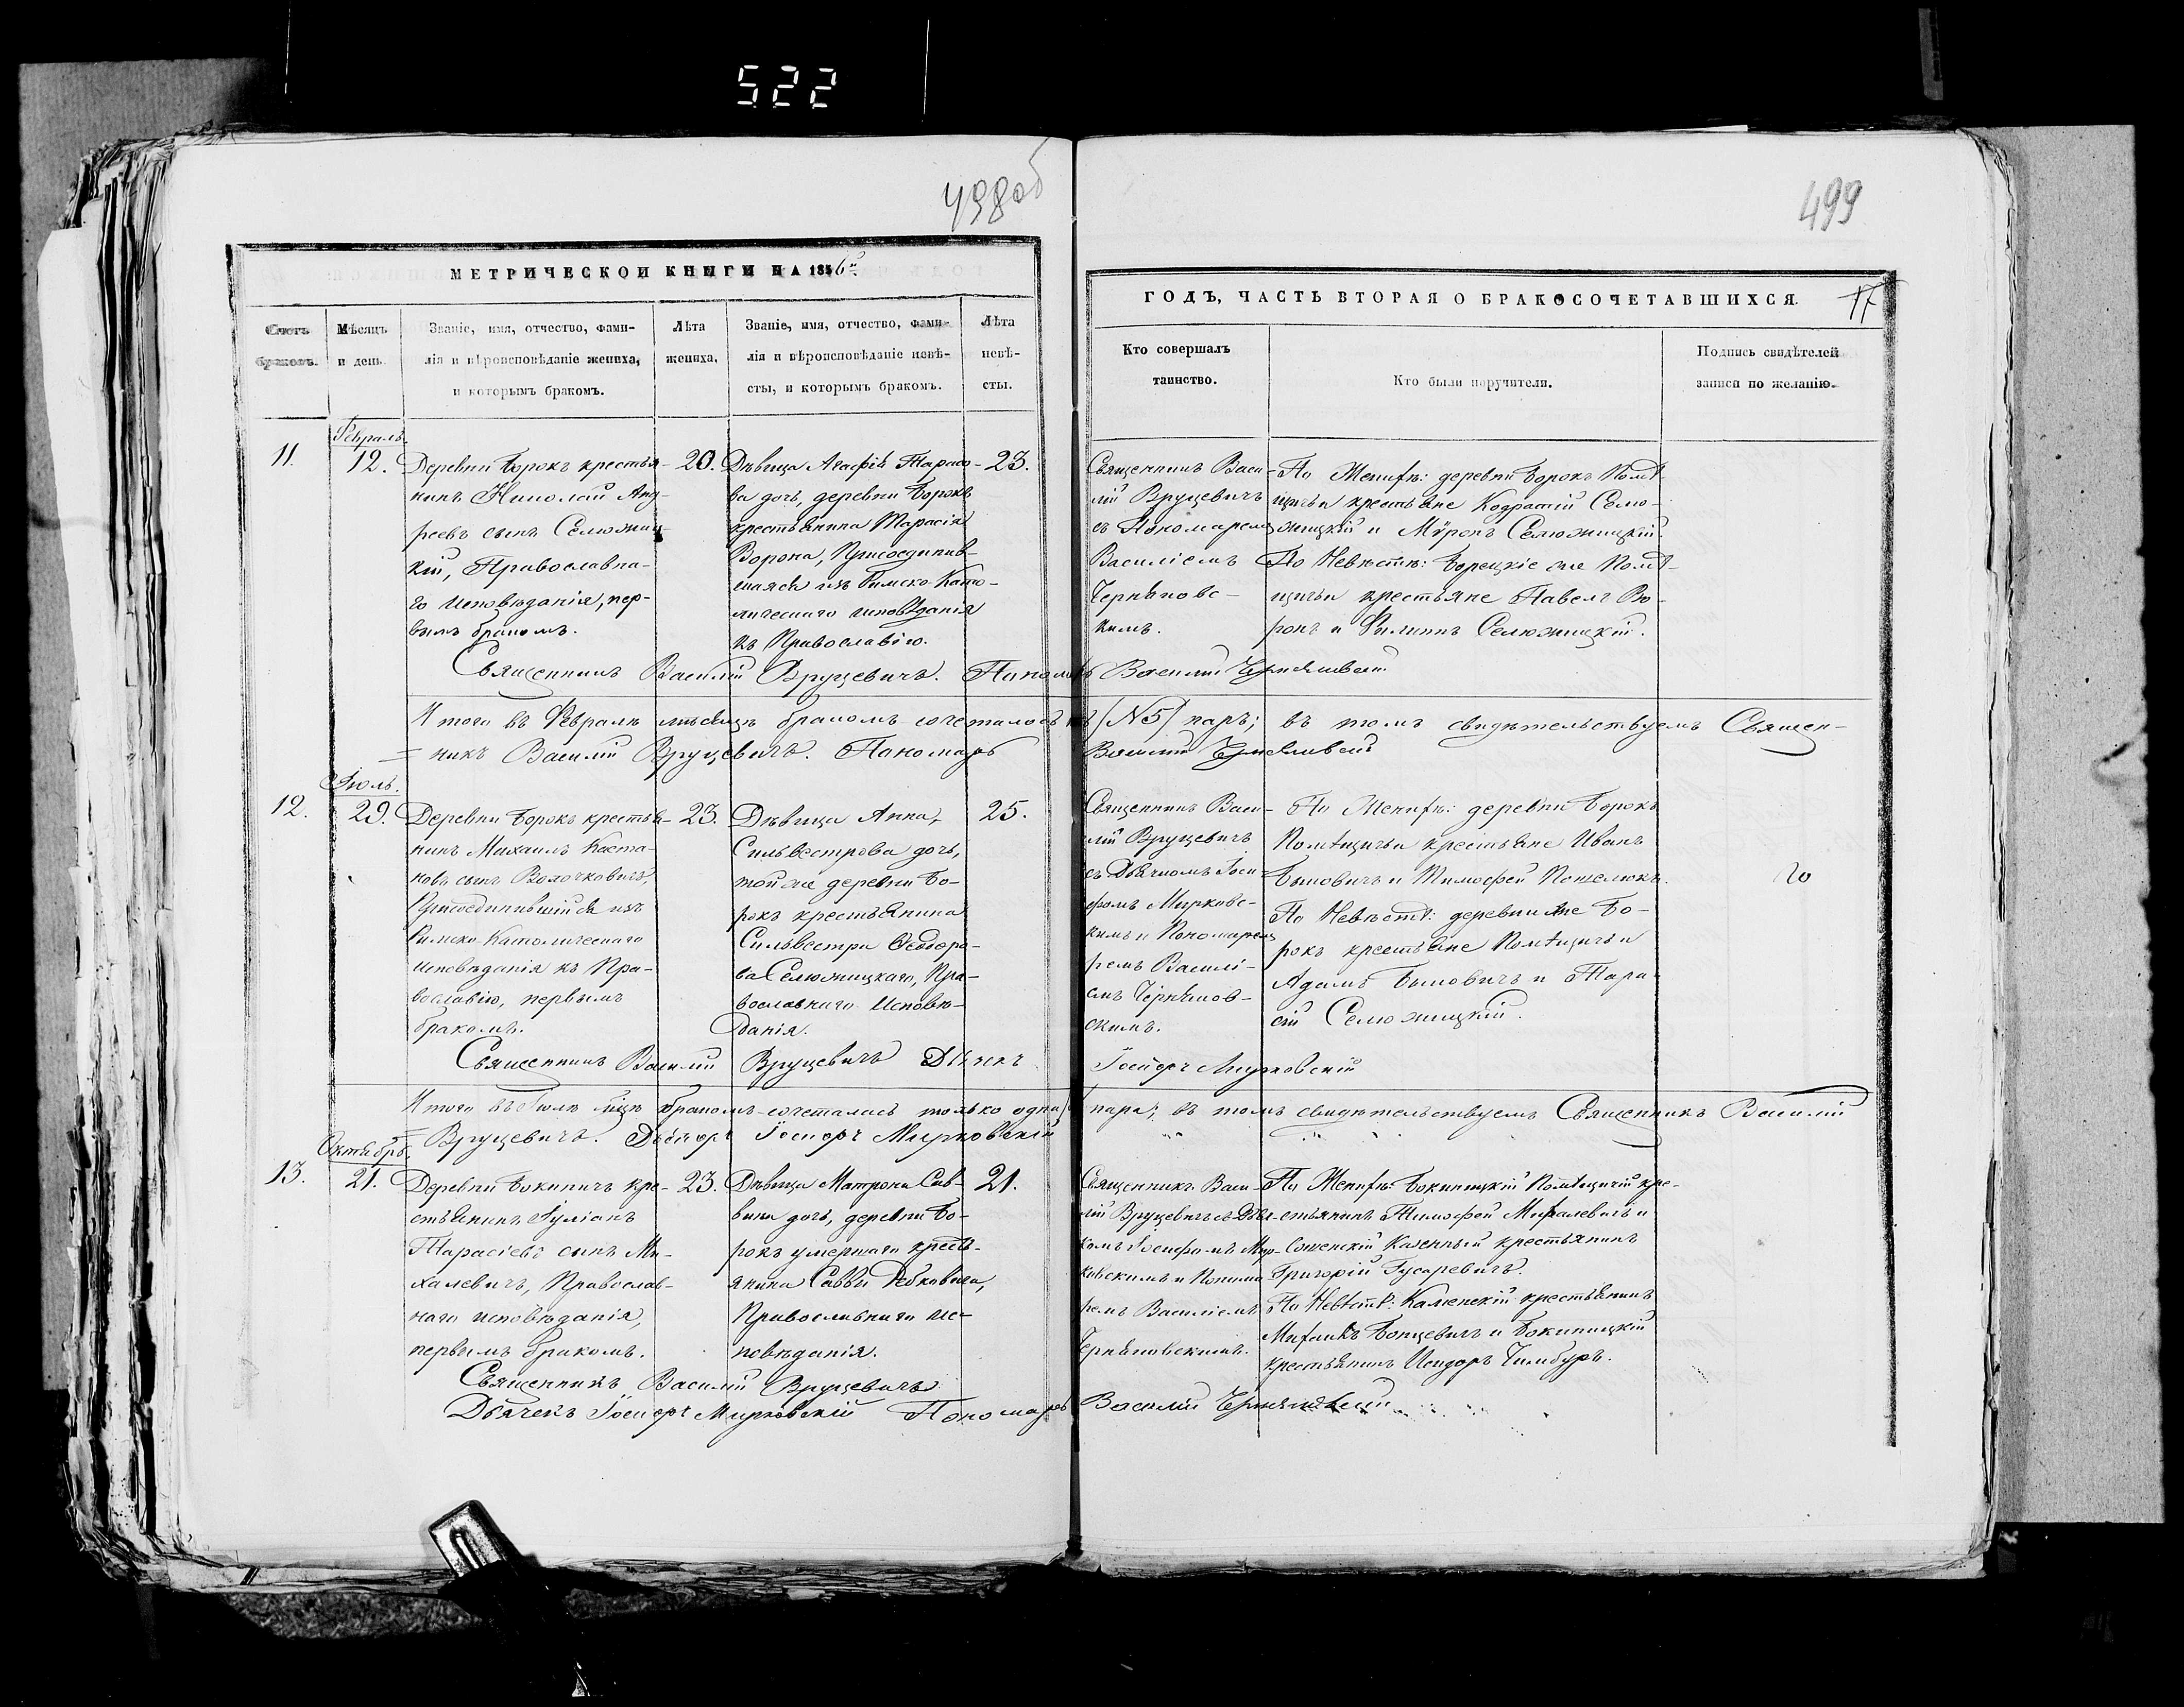 522
498об
499
МЕТРИЧЕСКОИ КНИГИ НА 1856й
Счетъ
браковъ.
Мѣсяцъ
и день.
Званіе, имя, отчество, фами-
лія и вѣроисповѣданіе жениха,
и которымъ бракомъ.
Лѣта
жениха.
Званіе, имя, отчество, фами-
лія и вѣроисповѣданіе невѣ-
сты, и которымъ бракомъ.
Лѣта
невѣ-
сты.
ГОДЪ, ЧАСТЬ ВТОРАЯ О БРАКОСОЧЕТАВШИХСЯ.
17
Кто совершалъ
таинство.
Кто были поручители.
Подпись свидѣтелей
записи по желанію.
11.
Февраль.
12.
Деревни Борокъ крестья-
нинъ Николай Анд-
реевъ сынъ Селюжиц-
кій, Православна-
го исповѣданія, пер-
вымъ бракомъ.
20.
Дѣвица Агафія Тарасо-
ва дочь, деревни Борокъ
крестьянина Тарасія
Ворона, Присоединив-
шаяся изъ Римско-Като-
лическаго исповѣданія
къ Православію.
23.
Священникъ Васи-
лій Вруцевичъ
съ Пономаремъ
Василіемъ
Черняковс-
кимъ.
По Женихѣ: деревни Борокъ Помѣ-
щичьи крестьяне Кодратій Селю-
жицкій и Мѵронъ Селюжицкій.
По Невѣстѣ: Борецкіе же Помѣ-
щичьи крестьяне Павелъ Во-
ронъ и Филиппъ Селюжицкій.
Священникъ Василій Вруцевичъ. Пономарь Василій
Итого въ Февралѣ мѣсяцѣ бракомъ сочеталось (№5) паръ; въ томъ свидѣтельствуемъ Священ-
=никъ Василій Вруцевичъ. Пономарь Василій
12.
Іюль.
29.
Деревни Борокъ крестья-
нинъ Михаилъ Каста-
новъ сынъ Волочковичъ,
Присоединившійся изъ
Римско-Католическаго
исповѣданія къ Пра-
вославію, первымъ
бракомъ.
23.
Дѣвица Анна,
Сильвестрова дочь,
той же деревни Бо-
рокъ крестьянина
Сильвестра Ѳеодоро-
ва Селюжицкаго, Пра-
вославнаго Исповѣ-
данія.
25.
Священникъ Васи-
лій Вруцевичъ
съ Дьячкомъ Іоси-
фомъ Мирковс-
кимъ и Пономарем
ремъ Василі-
емъ Черняков-
скимъ.
По Женихѣ: деревни Борокъ
Помѣщичьи крестьяне Иванъ
Быковичъ и Тимофей
По Невѣстѣ: деревни же Бо-
рокъ крестьяне Помѣщичьи
Адамъ Быковичъ и Тара-
сій Селюжицкій.
Священникъ Василій Вруцевичъ Дьячекъ Іосифъ Мирковскій
Итого въ Іюлѣ мцѣ бракомъ сочеталась только одна пара; въ томъ свидѣтельствуемъ Священникъ Василій
=Вруцевичъ. Дьячекъ Іосифъ Мирковскій
13.
Октябрь.
21.
Деревни Бокиничъ кре-
стьянинъ Іуліанъ
Тарасіевъ сынъ Ми-
халевичъ, Православ-
наго исповѣданія,
первымъ бракомъ.
23.
Дѣвица Матрона Сав-
вина дочь, деревни Бо-
рокъ умершаго кресть-
янина Саввы Рабковича,
Православнаго ис-
повѣданія.
21.
Священникъ Васи-
лій Вруцевичъ съ Дья-
комъ Іосифомъ Мир-
ковскимъ и Понома-
ремъ Василіемъ
Черняковскимъ.
По Женихѣ Бокиницкій Помѣщичій кре-
стьянинъ Тимофей Михалевичъ и
Казенный крестьянинъ
Григорій Гусаревичъ.
По Невѣстѣ: Каменскій крестьянинъ
Михаилъ Бонцевичъ и Бокиницкій
крестьянинъ Исидоръ Чимбуръ.
Священникъ Василій Вруцевичъ
Дьячекъ Іосифъ Мирковскій Пономарь Василій